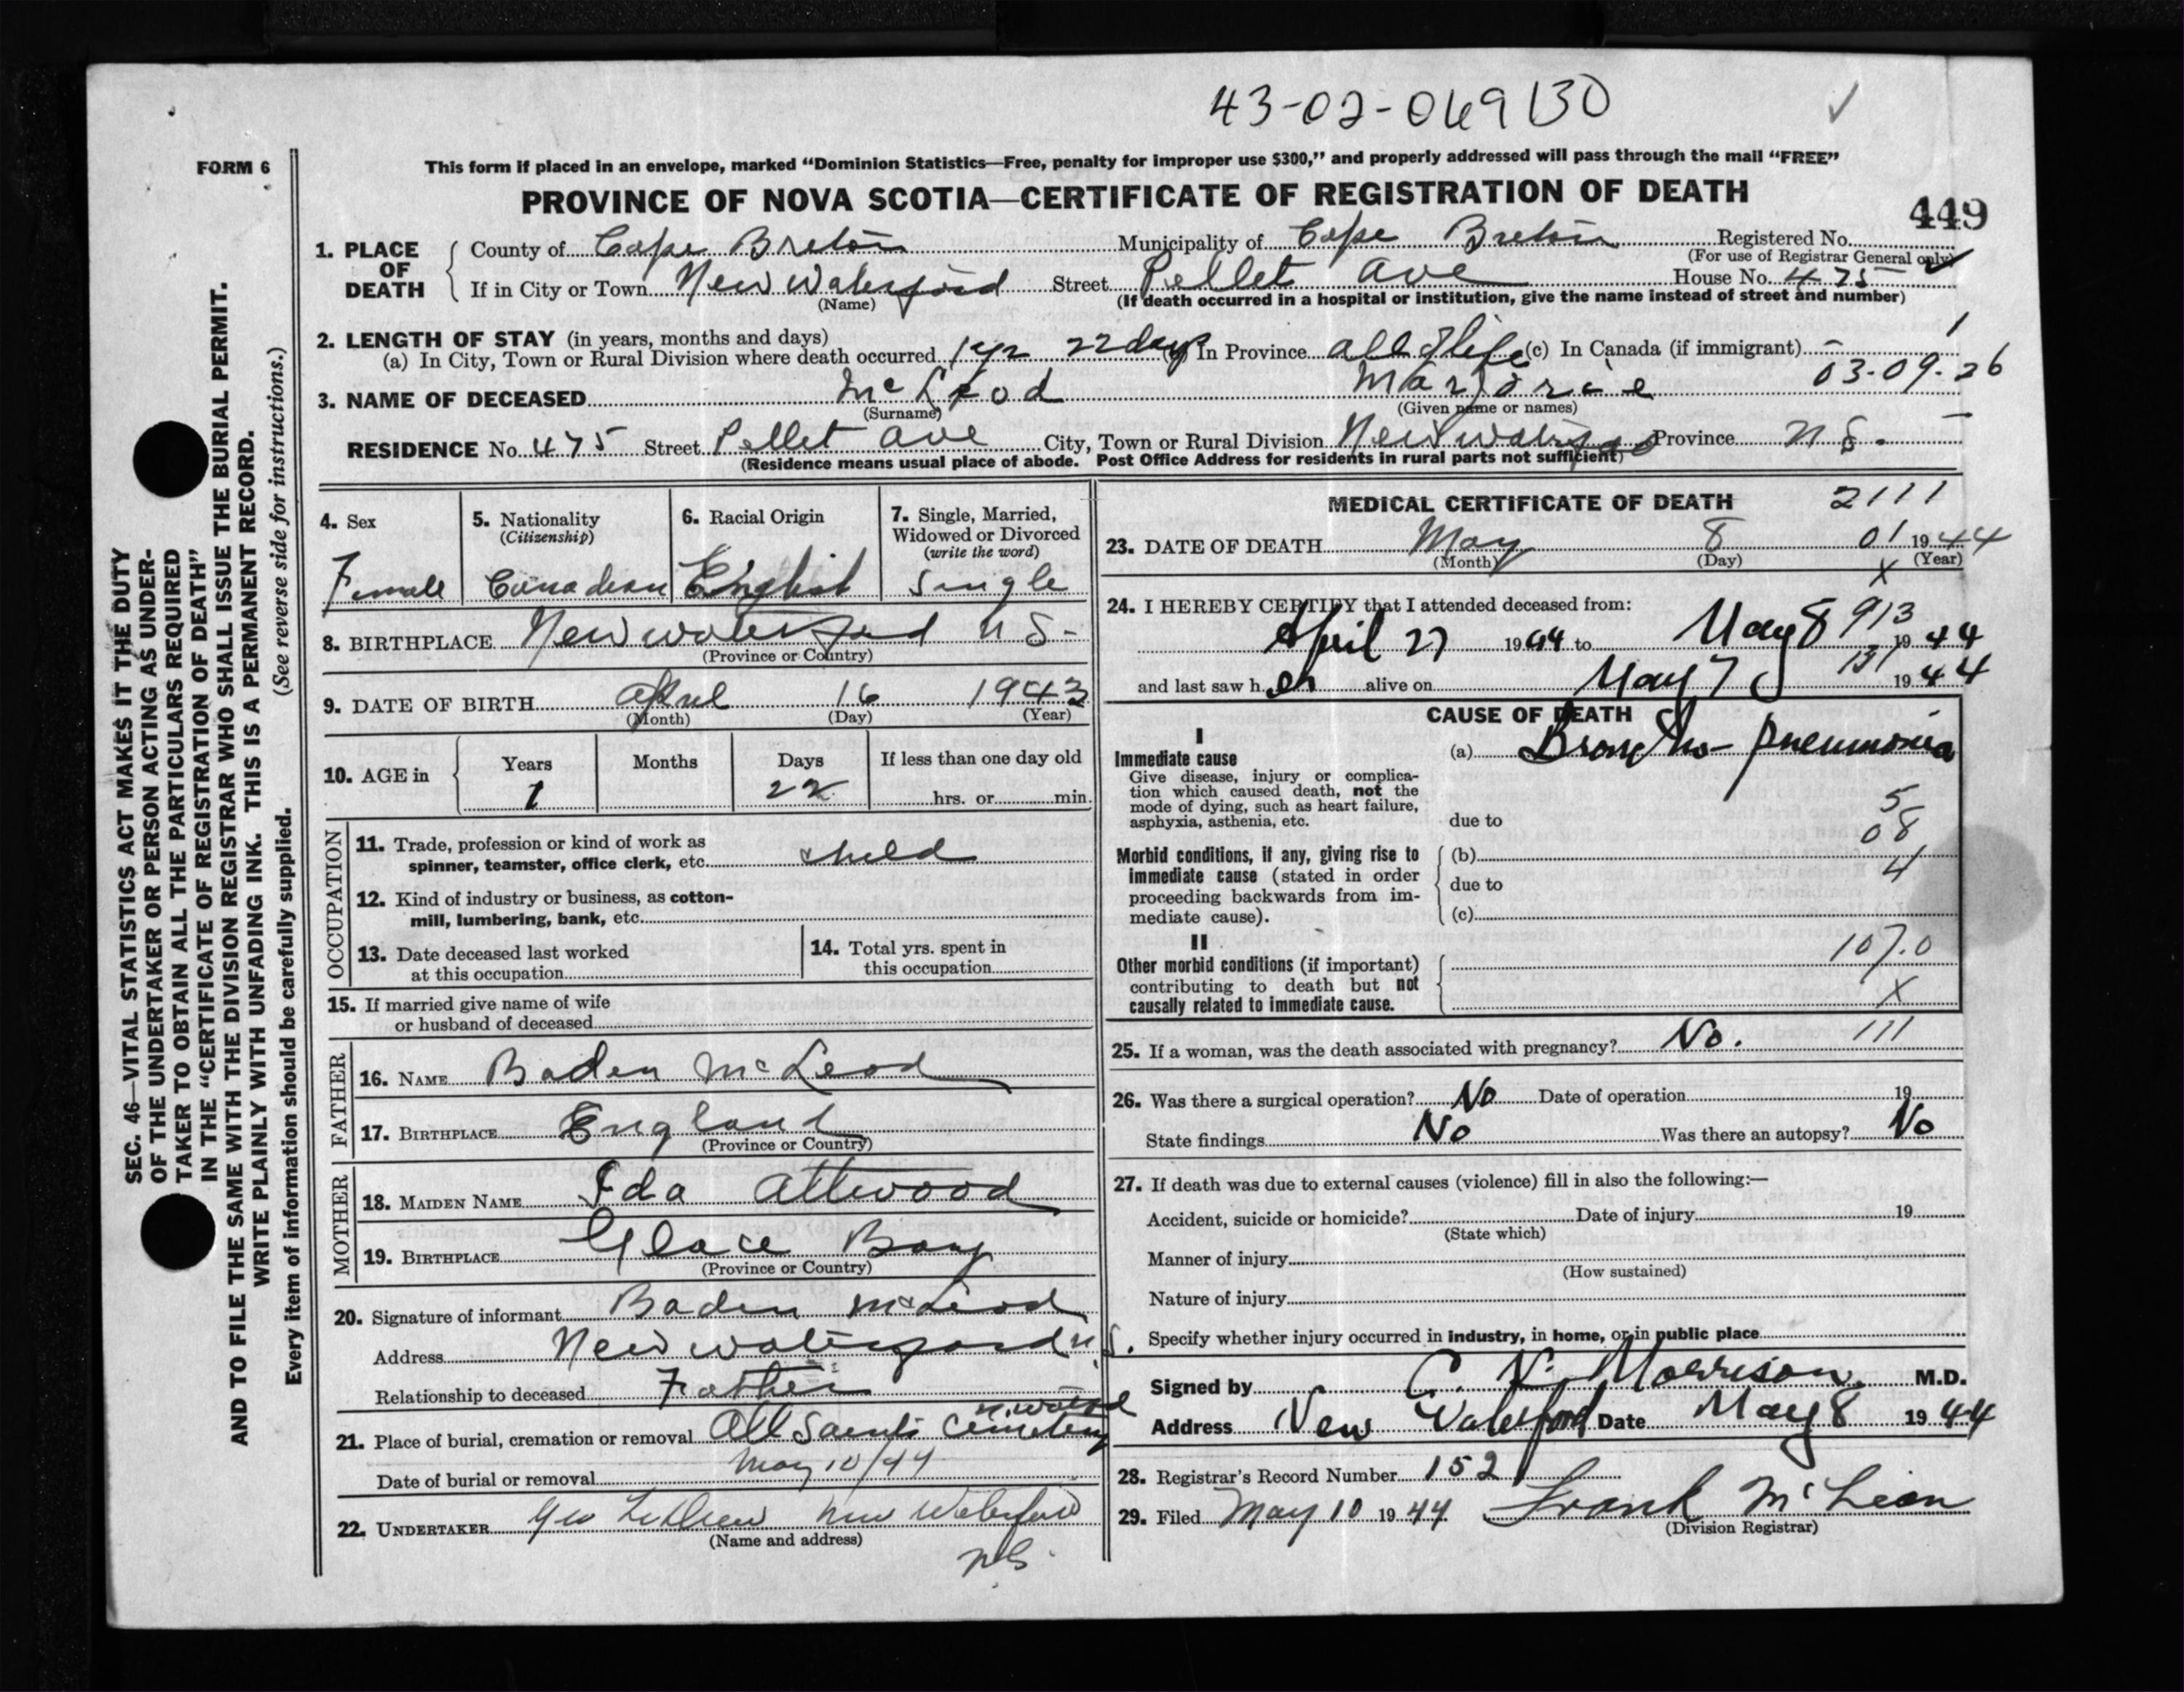 43-02-069130
FORM 6
This form if placed in an envelope, marked “Dominion Statistics—Free, penalty for improper use $300,” and properly addressed will pass through the mail “FREE”
PROVINCE OF NOVA SCOTIA—CERTIFICATE OF REGISTRATION OF DEATH
449
1. PLACE OF DEATH County of Cape Breton Municipality of Cape Breton Registered No.
(For use of Registrar General only)
If in City or Town New Waterford Street Pellet Ave House No. 475
(Name) (If death occurred in a hospital or institution, give the name instead of street and number)
2. LENGTH OF STAY (in years, months and days) 1
(a) In City, Town or Rural Division where death occurred 1 yr 22 days (b) In Province all of life (c) In Canada (if immigrant) –
3. NAME OF DECEASED McLeod Marjorie 03-09-26
(Surname) (Given name or names)
RESIDENCE No. 475 Street Pellet Ave City, Town or Rural Division New Waterford Province N S. –
(Residence means usual place of abode. Post Office Address for residents in rural parts not sufficient)
4. Sex
Female
5. Nationality
(Citizenship)
Canadian
6. Racial Origin
English
7. Single, Married,
Widowed or Divorced
(write the word)
Single
8. BIRTHPLACE New Waterford N S-
(Province or Country)
9. DATE OF BIRTH April 16 1943
(Month) (Day) (Year)
10. AGE in Years Months Days If less than one day old
1 22 hrs. or min.
OCCUPATION
11. Trade, profession or kind of work as
spinner, teamster, office clerk, etc. child
12. Kind of industry or business, as cotton-
mill, lumbering, bank, etc.
13. Date deceased last worked
at this occupation
14. Total yrs. spent in
this occupation
15. If married give name of wife
or husband of deceased
FATHER
16. NAME Baden McLeod
17. BIRTHPLACE England
(Province or Country)
MOTHER
18. MAIDEN NAME Ida Attwood
19. BIRTHPLACE Glace Bay
(Province or Country)
20. Signature of informant Baden McLeod
Address New Waterford N.S.
Relationship to deceased Father
21. Place of burial, cremation or removal All Saints Cemetery
Date of burial or removal May 10/44
22. UNDERTAKER Geo New Waterford
(Name and address)
NS.
MEDICAL CERTIFICATE OF DEATH 2111
23. DATE OF DEATH May 8 01 1944
(Month) (Day) (Year)
X
24. I HEREBY CERTIFY that I attended deceased from: 913
April 27 1944 to May 8 1944
131
and last saw her alive on May 7 1944
CAUSE OF DEATH
I
Immediate cause
Give disease, injury or complica-
tion which caused death, not the
mode of dying, such as heart failure,
asphyxia, asthenia, etc.
(a) Broncho-pneumonia
5
due to 08
Morbid conditions, if any, giving rise to
immediate cause (stated in order
proceeding backwards from im-
mediate cause).
(b)
4
due to
(c)
II
Other morbid conditions (if important)
contributing to death but not
causally related to immediate cause.
107.0
X
25. If a woman, was the death associated with pregnancy? No. 111
26. Was there a surgical operation? No Date of operation 19
State findings No Was there an autopsy? No
27. If death was due to external causes (violence) fill in also the following:—
Accident, suicide or homicide? Date of injury 19
(State which)
Manner of injury
(How sustained)
Nature of injury
Specify whether injury occurred in industry, in home, or in public place
Signed by C. N. Morrison. M.D.
Address New Waterford Date May 8 1944
28. Registrar's Record Number 152
29. Filed May 10 1944 Frank McLean
(Division Registrar)
SEC. 46—VITAL STATISTICS ACT MAKES IT THE DUTY
OF THE UNDERTAKER OR PERSON ACTING AS UNDER-
TAKER TO OBTAIN ALL THE PARTICULARS REQUIRED
IN THE “CERTIFICATE OF REGISTRATION OF DEATH”
AND TO FILE THE SAME WITH THE DIVISION REGISTRAR WHO SHALL ISSUE THE BURIAL PERMIT.
WRITE PLAINLY WITH UNFADING INK. THIS IS A PERMANENT RECORD.
Every item of information should be carefully supplied. (See reverse side for instructions.)